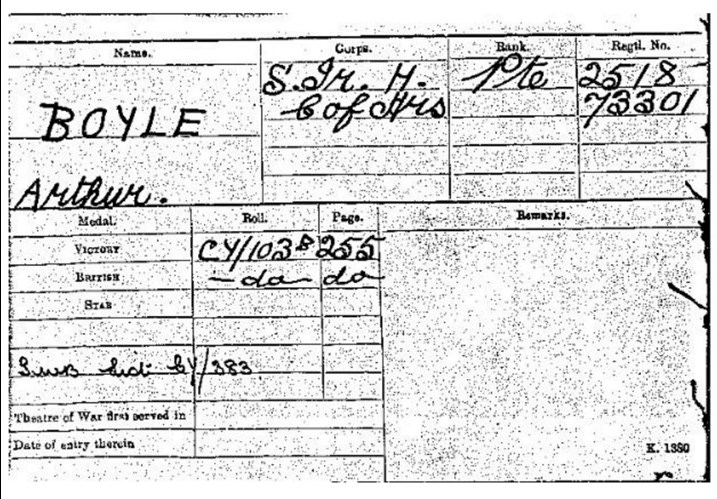 Name. Corps. Rank. Regtl. No.
S. Ir. H. Pte 2518
BOYLE C of Hrs 73301
Arthur.
Medal. Roll. Page. Remarks.
VICTORY CY/103B 255
BRITISH -do- do
STAR
S.W.B List CY/383
Theatre of War first served in
Date of entry therein
K. 1380